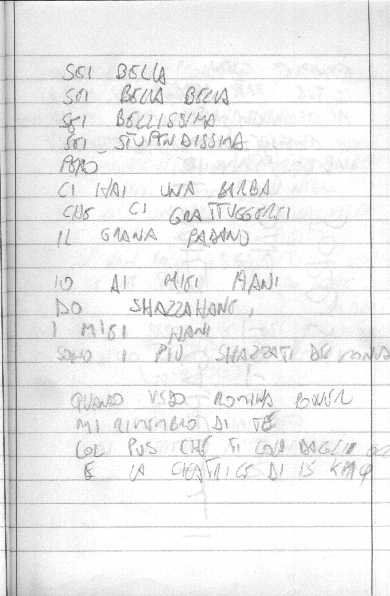 SEI BELLA
SEI BELLA BELLA
SEI BELLISSIMA
SEI STUPENDISSIMA
PERO
CI HAI UNA BARBA
CHE CI GRATTUGGEREI
IL GRANA PADANO
IO AI MIEI NANI
DO SMAZZAMANO,
I MIEI NANI
SONO I PIÙ SMAZZATI DEL
QUANDO VEDO ROMINA POWER
MI RIMEMBRO DI TE
COL PUS CHE TI COLA DAGLI
E LA CICATRICE DI 15